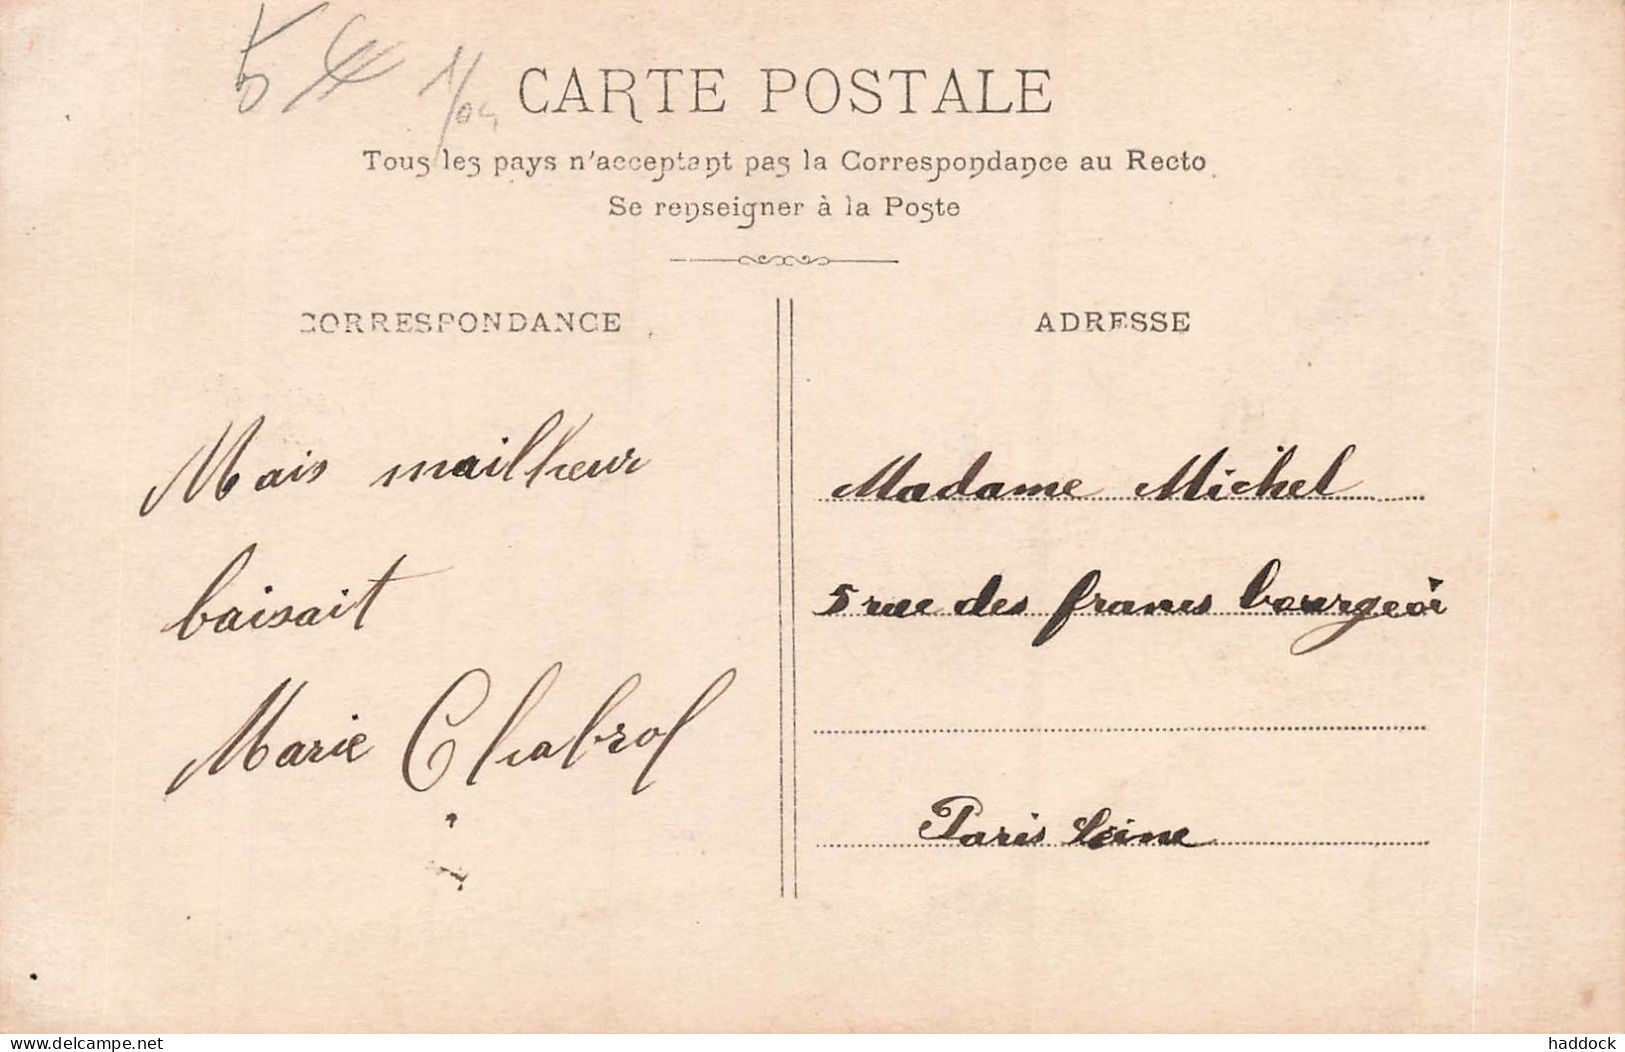 5 € 1/04
CARTE POSTALE
Tous les pays n'acceptant pas la Correspondance au Recto
Se renseigner à la Poste
CORRESPONDANCE
ADRESSE
Mais mailheur
baisait
Marie Chabrol
Madame Michel
5 rue des francs bourgeoi
Paris Seine
www.delcampe.net
haddock